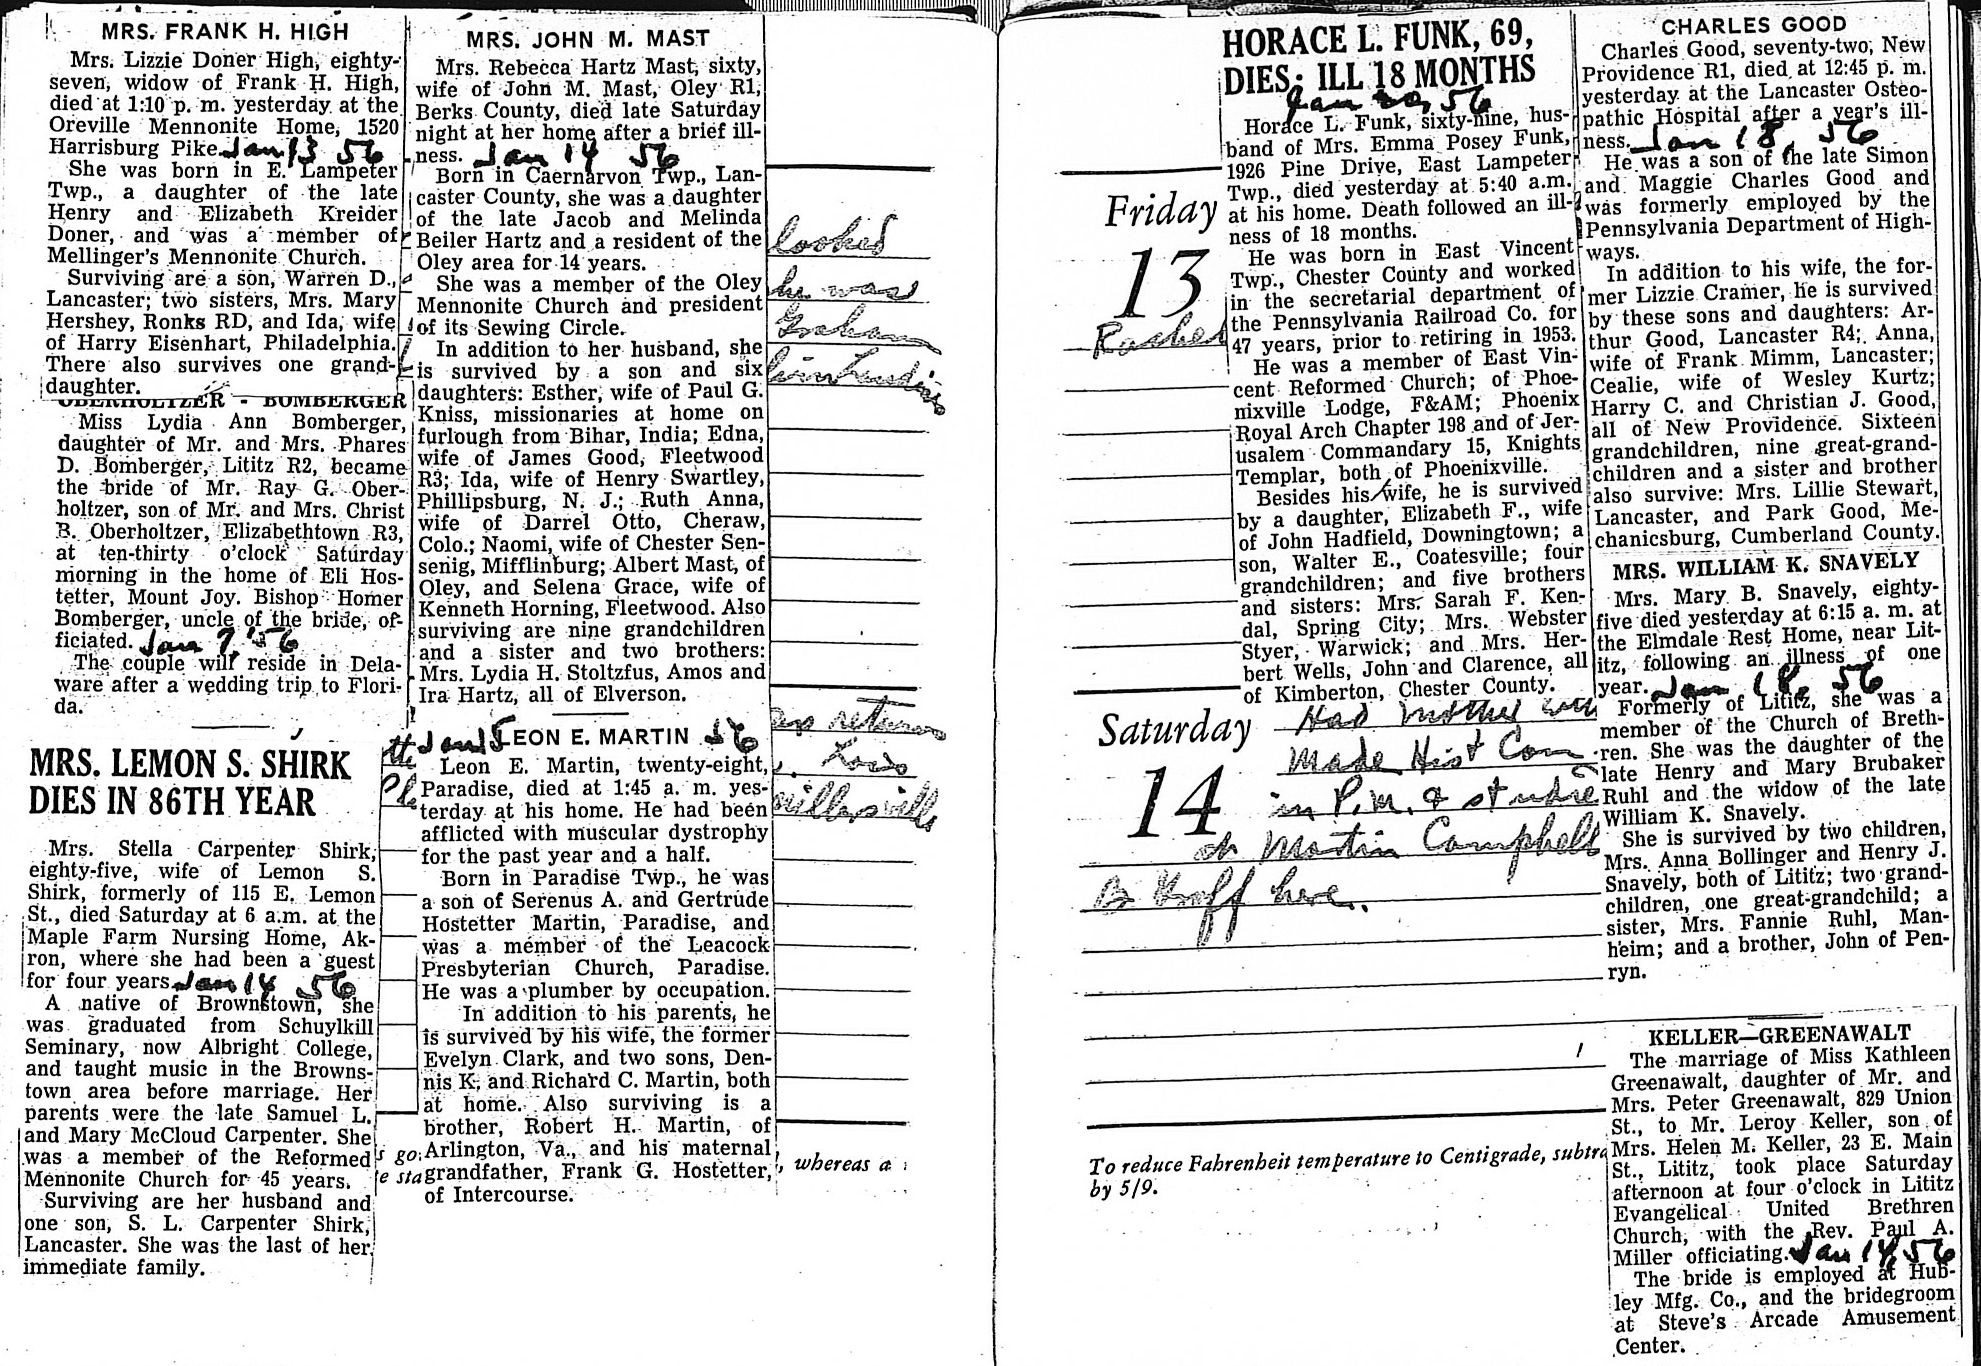 MRS. FRANK H. HIGH
Mrs. Lizzie Doner High, eighty-
seven, widow of Frank H. High,
died at 1:10 p. m. yesterday at the
Oreville Mennonite Home, 1520
Harrisburg Pike. Jan 13 56
She was born in E. Lampeter
Twp., a daughter of the late
Henry and Elizabeth Kreider
Doner, and was a member of
Mellinger's Mennonite Church.
Surviving are a son, Warren D.,
Lancaster; two sisters, Mrs. Mary
Hershey, Ronks RD, and Ida, wife
of Harry Eisenhart, Philadelphia.
There also survives one grand-
daughter.
OBERHOLTZER - BOMBERGER
Miss Lydia Ann Bomberger,
daughter of Mr. and Mrs. Phares
D. Bomberger, Lititz R2, became
the bride of Mr. Ray G. Ober-
holtzer, son of Mr. and Mrs. Christ
B. Oberholtzer, Elizabethtown R3,
at ten-thirty o'clock Saturday
morning in the home of Eli Hos-
tetter, Mount Joy. Bishop Homer
Bomberger, uncle of the bride, of-
ficiated. Jan 7, '56
The couple will reside in Dela-
ware after a wedding trip to Flori-
da.
MRS. LEMON S. SHIRK
DIES IN 86TH YEAR
Mrs. Stella Carpenter Shirk,
eighty-five, wife of Lemon S.
Shirk, formerly of 115 E. Lemon
St., died Saturday at 6 a.m. at the
Maple Farm Nursing Home, Ak-
ron, where she had been a guest
for four years. Jan 14 56
A native of Brownstown, she
was graduated from Schuylkill
Seminary, now Albright College,
and taught music in the Browns-
town area before marriage. Her
parents were the late Samuel L.
and Mary McCloud Carpenter. She
was a member of the Reformed
Mennonite Church for 45 years.
Surviving are her husband and
one son, S. L. Carpenter Shirk,
Lancaster. She was the last of her
immediate family.
MRS. JOHN M. MAST
Mrs. Rebecca Hartz Mast, sixty,
wife of John M. Mast, Oley R1,
Berks County, died late Saturday
night at her home after a brief ill-
ness. Jan 14 56
Born in Caernarvon Twp., Lan-
caster County, she was a daughter
of the late Jacob and Melinda
Beiler Hartz and a resident of the
Oley area for 14 years.
She was a member of the Oley
Mennonite Church and president
of its Sewing Circle.
In addition to her husband, she
is survived by a son and six
daughters: Esther, wife of Paul G.
Kniss, missionaries at home on
furlough from Bihar, India; Edna,
wife of James Good, Fleetwood
R3; Ida, wife of Henry Swartley,
Phillipsburg, N. J.; Ruth Anna,
wife of Darrel Otto, Cheraw,
Colo.; Naomi, wife of Chester Sen-
senig, Mifflinburg; Albert Mast, of
Oley, and Selena Grace, wife of
Kenneth Horning, Fleetwood. Also
surviving are nine grandchildren
and a sister and two brothers:
Mrs. Lydia H. Stoltzfus, Amos and
Ira Hartz, all of Elverson.
Jan 15 LEON E. MARTIN 56
Leon E. Martin, twenty-eight,
Paradise, died at 1:45 a. m. yes-
terday at his home. He had been
afflicted with muscular dystrophy
for the past year and a half.
Born in Paradise Twp., he was
a son of Serenus A. and Gertrude
Hostetter Martin, Paradise, and
was a member of the Leacock
Presbyterian Church, Paradise.
He was a plumber by occupation.
In addition to his parents, he
is survived by his wife, the former
Evelyn Clark, and two sons, Den-
nis K. and Richard C. Martin, both
at home. Also surviving is a
brother, Robert H. Martin, of
Arlington, Va., and his maternal
grandfather, Frank G. Hostetter,
of Intercourse.
looked
he was
Graham
return
Millersville
whereas a
Friday
13
Rachel
Saturday
14
Had mother
made Hist Com
in P.M. &
Martin Campbell
here.
To reduce Fahrenheit temperature to Centigrade, subtra
by 5/9.
HORACE L. FUNK, 69,
DIES; ILL 18 MONTHS
Jan 20, 56
Horace L. Funk, sixty-nine, hus-
band of Mrs. Emma Posey Funk,
1926 Pine Drive, East Lampeter
Twp., died yesterday at 5:40 a.m.
at his home. Death followed an ill-
ness of 18 months.
He was born in East Vincent
Twp., Chester County and worked
in the secretarial department of
the Pennsylvania Railroad Co. for
47 years, prior to retiring in 1953.
He was a member of East Vin-
cent Reformed Church; of Phoe-
nixville Lodge, F&AM; Phoenix
Royal Arch Chapter 198 and of Jer-
usalem Commandary 15, Knights
Templar, both of Phoenixville.
Besides his wife, he is survived
by a daughter, Elizabeth F., wife
of John Hadfield, Downingtown; a
son, Walter E., Coatesville; four
grandchildren; and five brothers
and sisters: Mrs. Sarah F. Ken-
dal, Spring City; Mrs. Webster
Styer, Warwick; and Mrs. Her-
bert Wells, John and Clarence, all
of Kimberton, Chester County.
CHARLES GOOD
Charles Good, seventy-two, New
Providence R1, died at 12:45 p. m.
yesterday at the Lancaster Osteo-
pathic Hospital after a year's ill-
ness. Jan 18, 56
He was a son of the late Simon
and Maggie Charles Good and
was formerly employed by the
Pennsylvania Department of High-
ways.
In addition to his wife, the for-
mer Lizzie Cramer, he is survived
by these sons and daughters: Ar-
thur Good, Lancaster R4; Anna,
wife of Frank Mimm, Lancaster;
Cealie, wife of Wesley Kurtz;
Harry C. and Christian J. Good,
all of New Providence. Sixteen
grandchildren, nine great-grand-
children and a sister and brother
also survive: Mrs. Lillie Stewart,
Lancaster, and Park Good, Me-
chanicsburg, Cumberland County.
MRS. WILLIAM K. SNAVELY
Mrs. Mary B. Snavely, eighty-
five died yesterday at 6:15 a. m. at
the Elmdale Rest Home, near Lit-
itz, following an illness of one
year. Jan 18, 56
Formerly of Lititz, she was a
member of the Church of Breth-
ren. She was the daughter of the
late Henry and Mary Brubaker
Ruhl and the widow of the late
William K. Snavely.
She is survived by two children,
Mrs. Anna Bollinger and Henry J.
Snavely, both of Lititz; two grand-
children, one great-grandchild; a
sister, Mrs. Fannie Ruhl, Man-
heim; and a brother, John of Pen-
ryn.
KELLER—GREENAWALT
The marriage of Miss Kathleen
Greenawalt, daughter of Mr. and
Mrs. Peter Greenawalt, 829 Union
St., to Mr. Leroy Keller, son of
Mrs. Helen M. Keller, 23 E. Main
St., Lititz, took place Saturday
afternoon at four o'clock in Lititz
Evangelical United Brethren
Church, with the Rev. Paul A.
Miller officiating. Jan 14, 56
The bride is employed at Hub-
ley Mfg. Co., and the bridegroom
at Steve's Arcade Amusement
Center.